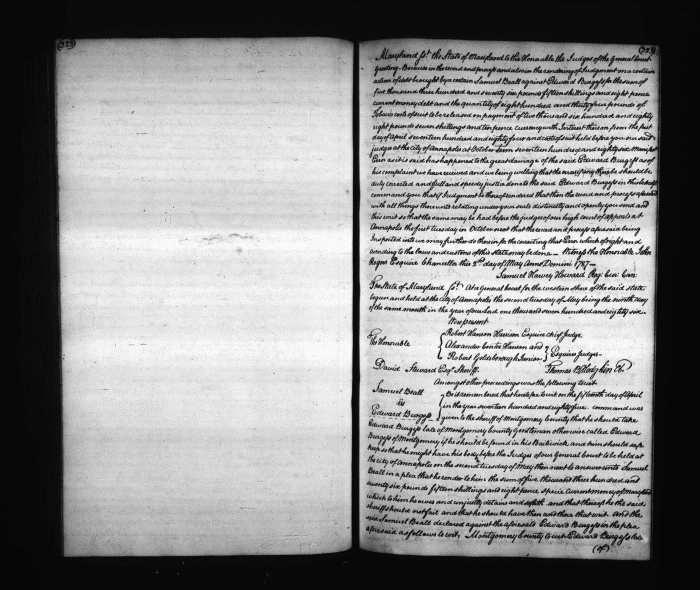 (323)
(323)
Maryland sct. the State of Maryland to the Honorable the Judges of the General Court
Greeting. Because in the record and process and also in the rendering of Judgment on a certain
action of debt brought by a certain Samuel Beall against Edward Burgess for the sum of
five thousand three hundred and seventy six pounds fifteen shillings and eight pence
current money debt and the quantity of eight hundred and thirty four pounds of
Tobacco costs of suit to be released on payment of two thousand six hundred and eighty
eight pounds seven shillings and ten pence currency with Interest thereon from the first
day of April seventeen hundred and eighty four and costs of suit held before you our said
judges at the city of Annapolis at October Term seventeen hundred and eighty six Manifest
Error as it is said has happened to the great damage of the said Edward Burgess as of
his complaint we have received and we being willing that the error if any there be should be
duly corrected and full and speedy justice done to the said Edward Burgess in this behalf
command you that if Judgment be thereof rendered that then the record and process aforesaid
with all things thereunto relating under your seals distinctly and openly you send and
this writ so that the same may be had before the judges of our high court of appeals at
Annapolis the first tuesday in October next that the record and process aforesaid being
Inspected into we may further do therein for the correcting that Error which of right and
according to the laws and customs of this state may be done — Witness the Honorable John
Rogers Esquire Chancellor this 2d. day of May Anno Domini 1787 —
Samuel Harvey Howard Reg: Cur: Can:
The State of Maryland sct. At a General Court for the western shore of the said state
begun and held at the city of Annapolis the second tuesday of May being the ninth day
of the same month in the year of our Lord one thousand seven hundred and eighty six —
Were present
The Honorable
Robert Hanson Harrison Esquire chief Judge
Alexander Contee Hanson and
Robert Goldsborough Junior
Esquires Judges
David Steward Esqr. Sheriff. Thomas B Hodgkin Cl.
Amongst other proceedings was the following to wit
Samuel Beall
vs
Edward Burgess
Be it remembered that heretofore to wit on the fifteenth day of April
in the year seventeen hundred and eighty five command was
given to the sheriff of Montgomery County that he should take
Edward Burgess late of Montgomery County Gentleman otherwise called Edward
Burgess of Montgomery if he should be found in his Bailiwick and him should safe
keep so that he might have his body before the Judges of our General Court to be held at
the city of Annapolis on the second tuesday of May then next to answer unto Samuel
Beall in a plea that he render to him the sum of five thousand three hundred and
seventy six pounds fifteen shillings and eight pence specie current money of Maryland
which to him he owes and unjustly detains and so forth. and that thereof he the said
sheriff should not fail and that he should have then and there that writ. And the
said Samuel Beall declared against the aforesaid Edward Burgess in the plea
aforesaid as follows to wit, Montgomery County to wit Edward Burgess late
(of)